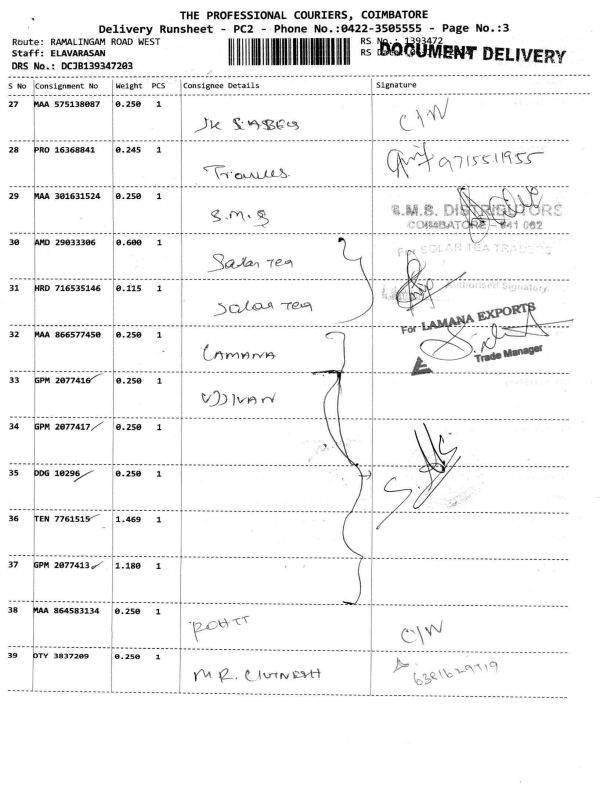 THE PROFESSIONAL COURIERS, COIMBATORE
Delivery Runsheet - PC2 - Phone No.:0422-3505555 - Page No.:3
Route: RAMALINGAM ROAD WEST RS No.: 1393472
Staff: ELAVARASAN RS DOCUMENT DELIVERY
DRS No.: DCJB139347203
S No Consignment No Weight PCS Consignee Details Signature
27 MAA 575138087 0.250 1 C/W
28 PRO 16368841 0.245 1 9715511955
29 MAA 301631524 0.250 1 S.M.S S.M.S. DISTRIBUTORS
COIMBATORE - 641 002
30 AMD 29033306 0.600 1 Solar Tea For SOLAR TEA TRADERS
31 HRD 716535146 0.115 1 Solar Tea Authorised Signatory.
32 MAA 866577450 0.250 1 LAMANA For LAMANA EXPORTS
Trade Manager
33 GPM 2077416 0.250 1 UJJIVAN
34 GPM 2077417 0.250 1
35 DDG 10296 0.250 1
36 TEN 7761515 1.469 1
37 GPM 2077413 1.180 1
38 MAA 864583134 0.250 1 ROHIT C/W
39 OTY 3837209 0.250 1 MR.